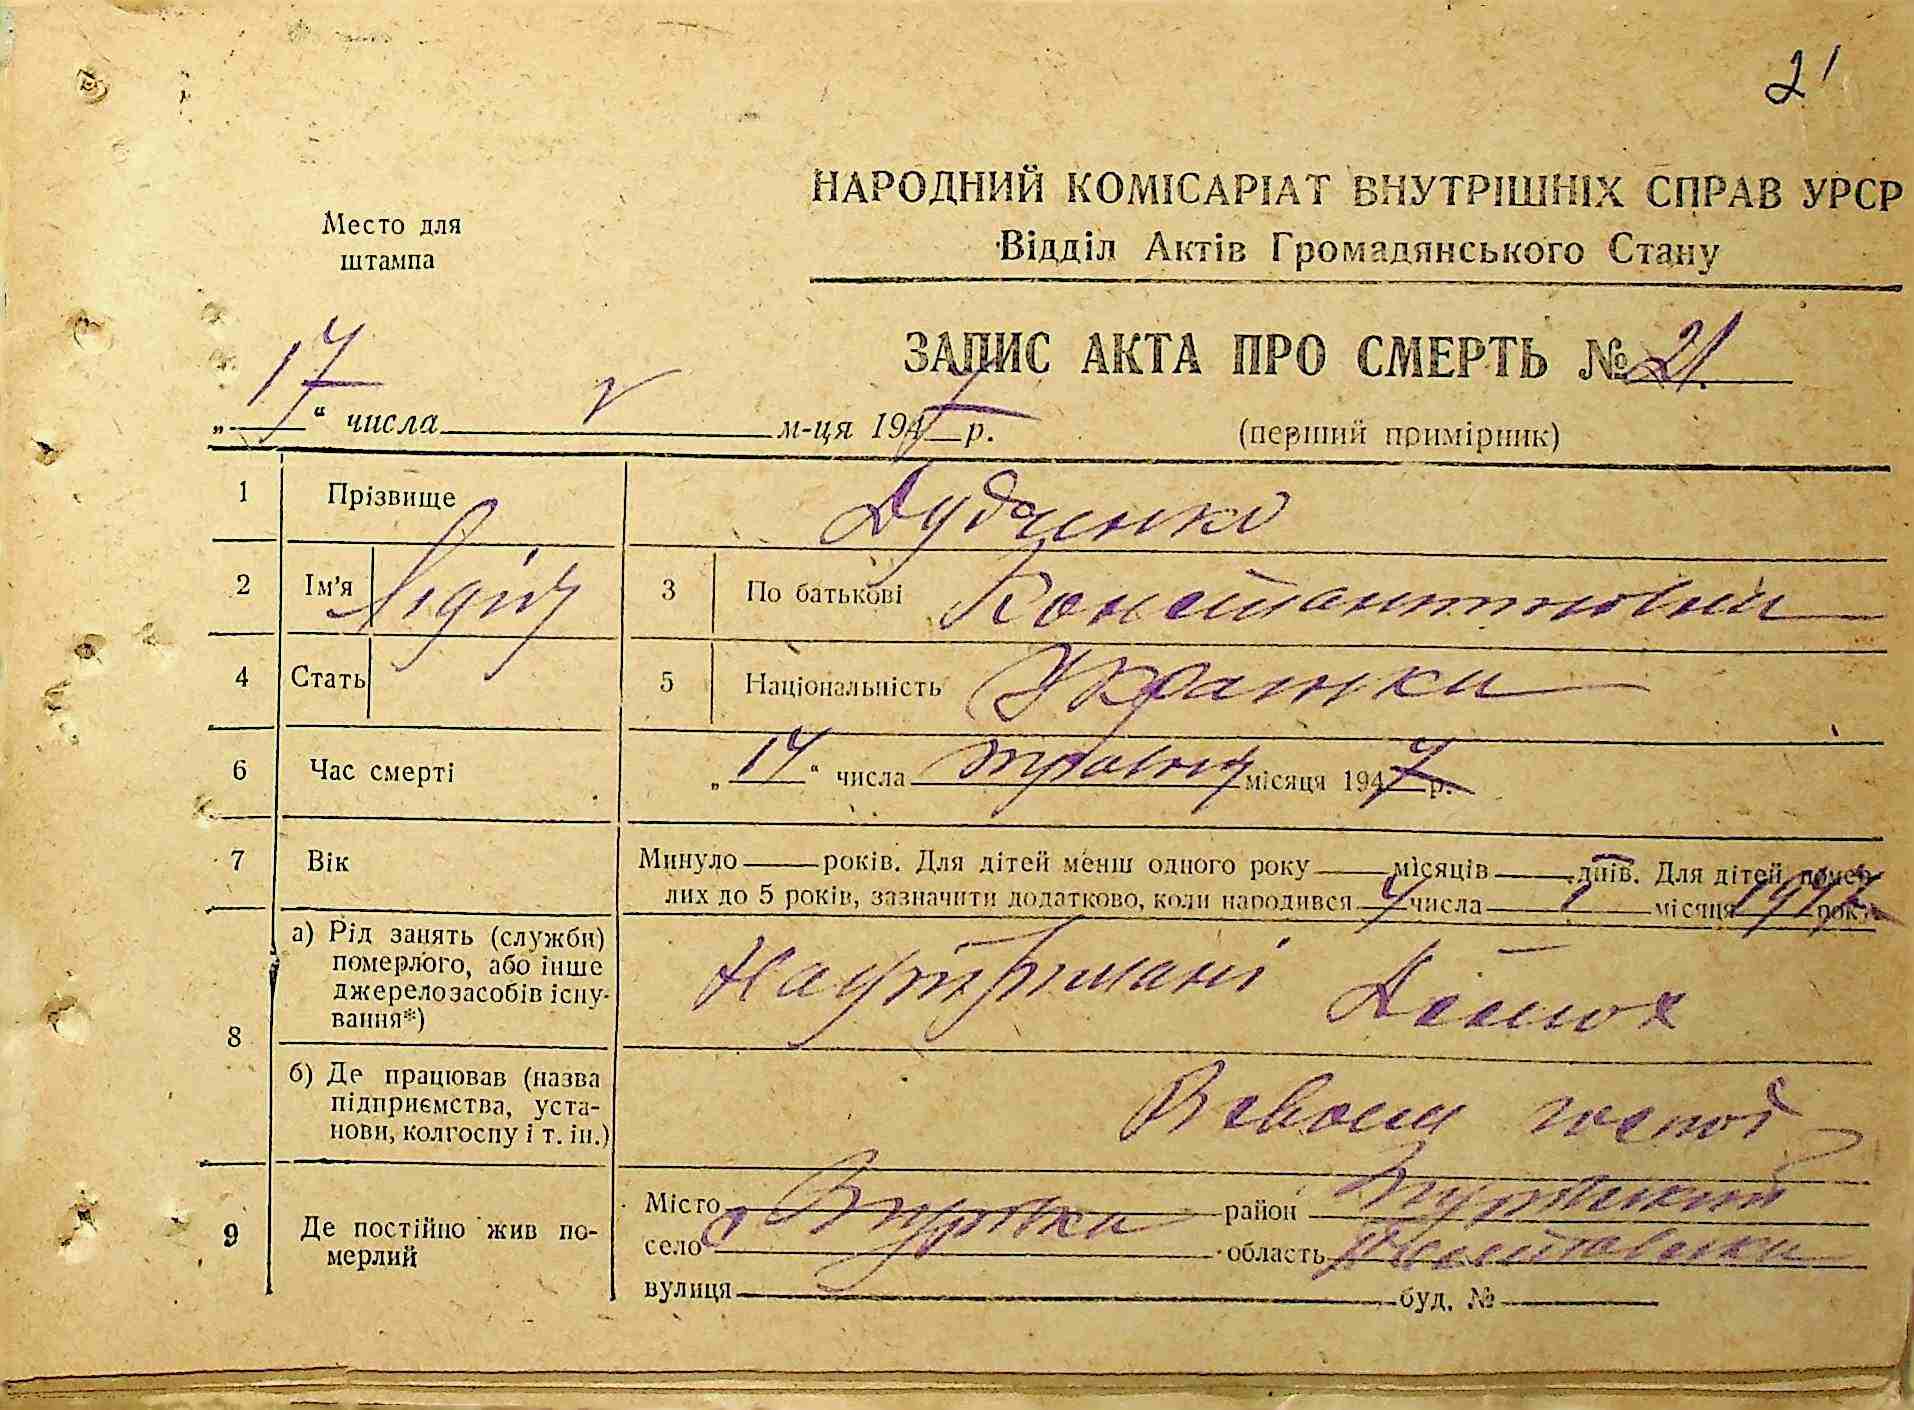 21
НАРОДНИЙ КОМІСАРІАТ ВНУТРІШНІХ СПРАВ УРСР
Відділ Актів Громадянського Стану
Место для
штампа
ЗАПИС АКТА ПРО СМЕРТЬ № 21.
„17“ числа V м-ця 1947 р.
(перший примірник)
1 Прізвище Дудченко
2 Ім'я Лідія 3 По батькові Константиновна
4 Стать 5 Національність Українка
6 Час смерті „17“ числа травня місяця 1947 р.
7 Вік Минуло року. Для дітей менш одного року місяців днів. Для дітей, помер-
лих до 5 років, зазначити додатково, коли народився числа місяця 1947 року
8 а) Рід занять (служби)
померлого, або інше
джерело засобів існу-
вання*)
На утриманні
б) Де працював (назва
підприємства, уста-
нови, колгоспу і т. ін.)
9 Де постійно жив по-
мерлий
Місто район
село область
вулиця буд. №